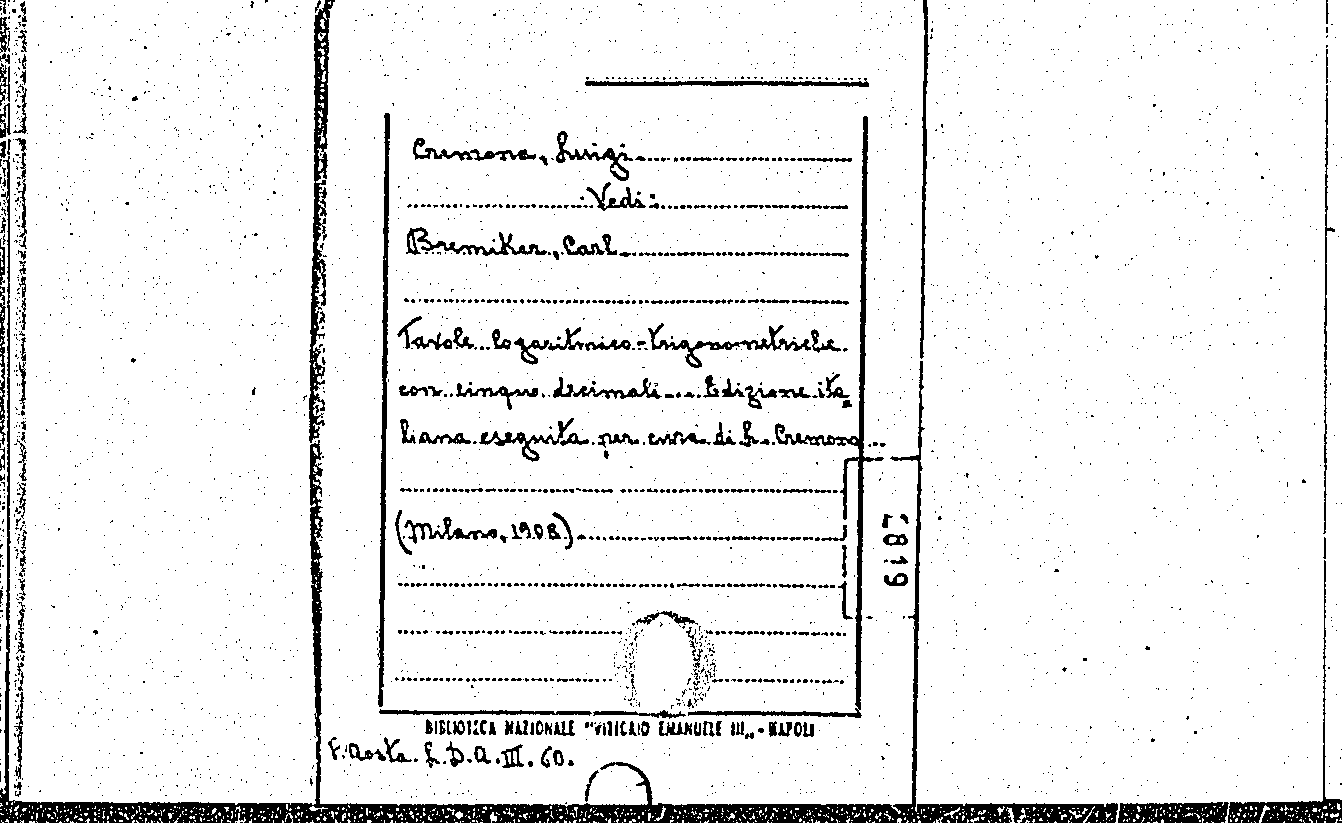 Cremona, Luigi
Vedi:
Bremiker, Carl
Tavole logaritmico-trigonometriche
con cinque decimali... Edizione ita=
liana eseguita per cura di L. Cremona...
(Milano, 1908)
6187
BIBLIOTECA NAZIONALE "VITTORIO EMANUELE III„ - NAPOLI
F. Aosta. L. D. A. III. 60.